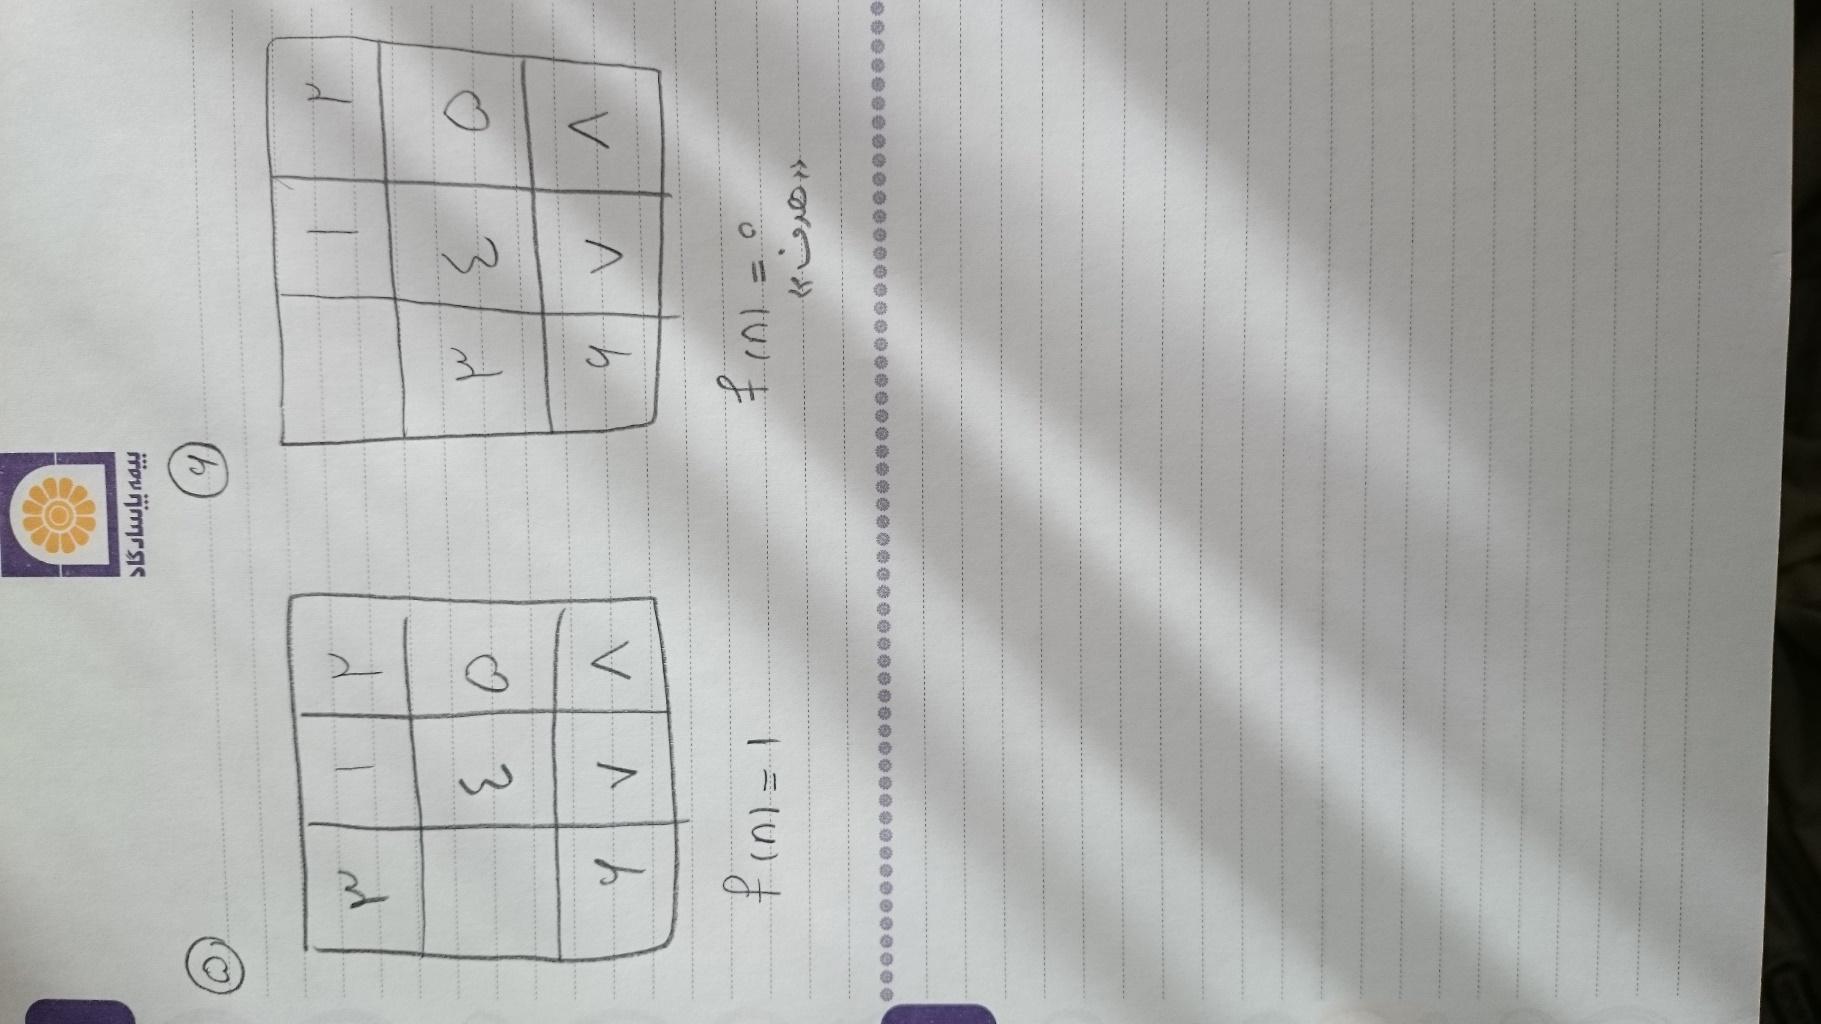 بیمه پاسارگاد
۵
۳ ۱ ۲
۴ ۵
۶ ۷ ۸
f(n) = 1
۶
۱ ۲
۳ ۴ ۵
۶ ۷ ۸
f(n) = 0
«هدف»